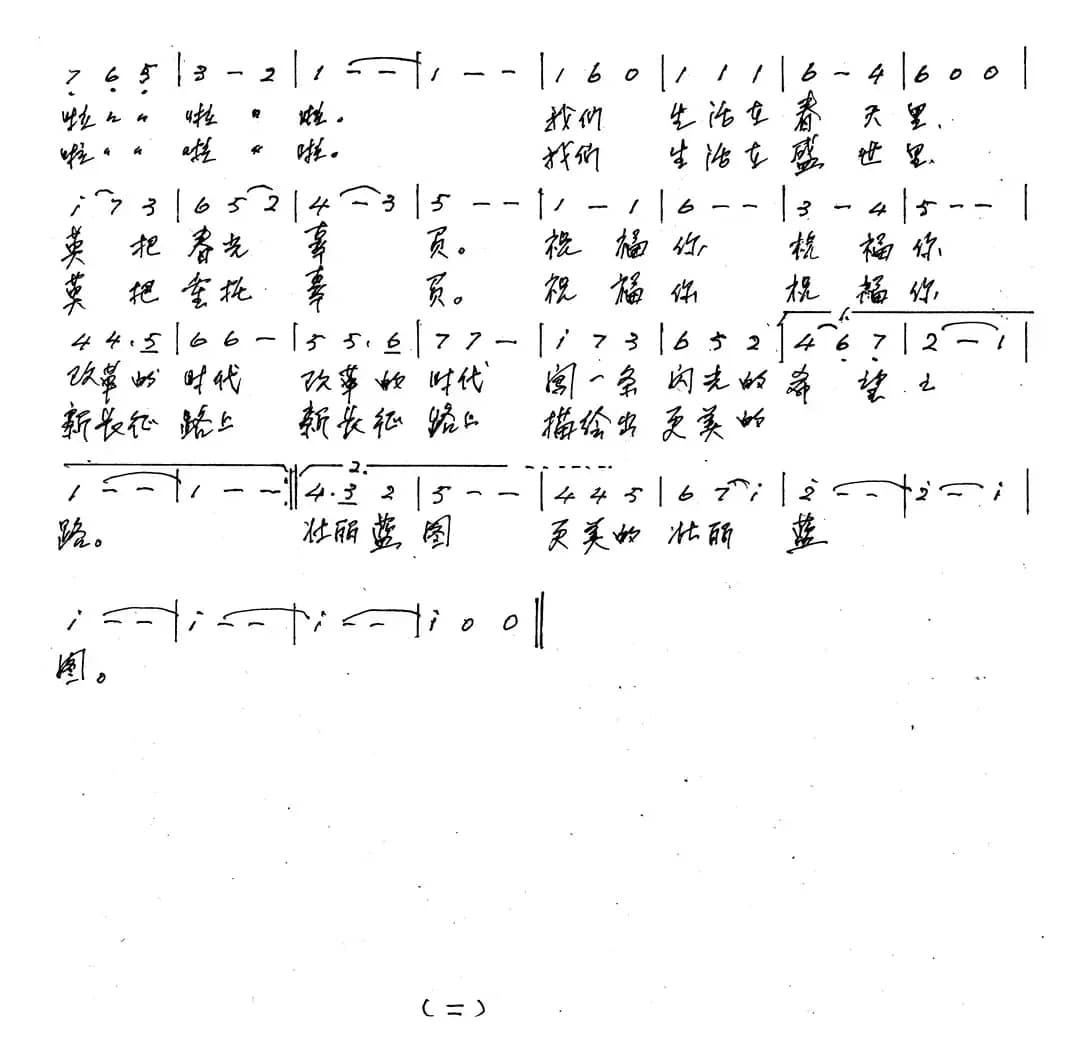 7̣ 6̣ 5̣ | 3 - 2 | 1 - - | 1 - - | 1 6 0 | 1 1 1 | 6 - 4 | 6 0 0 |
啦〃〃 啦〃 啦。 我们 生活在 春 天 里、
啦〃〃 啦〃 啦。 我们 生活在 盛 世 里、
i 7 3 | 6 5 2 | 4 - 3 | 5 - - | 1 - 1 | 6 - - | 3 - 4 | 5 - - |
莫 把 春光 辜 负。 祝 福 你 祝 福 你
莫 把 重托 辜 负。 祝 福 你 祝 福 你
1.
4 4. 5 | 6 6 - | 5 5. 6 | 7 7 - | i 7 3 | 6 5 2 | 4 6̣ 7̣ | 2 - 1 |
改革的 时代 改革的 时代 闯一条 闪光的 希 望 之
新长征 路上 新长征 路上 描绘出 更美的
2.
1 - - | 1 - - :|| 4. 3 2 | 5 - - | 4 4 5 | 6 7 i | 2̇ - - | 2̇ - i |
路。 壮丽蓝 图 更美的 壮丽 蓝
i - - | i - - | i - - | i 0 0 ||
图。
(二)